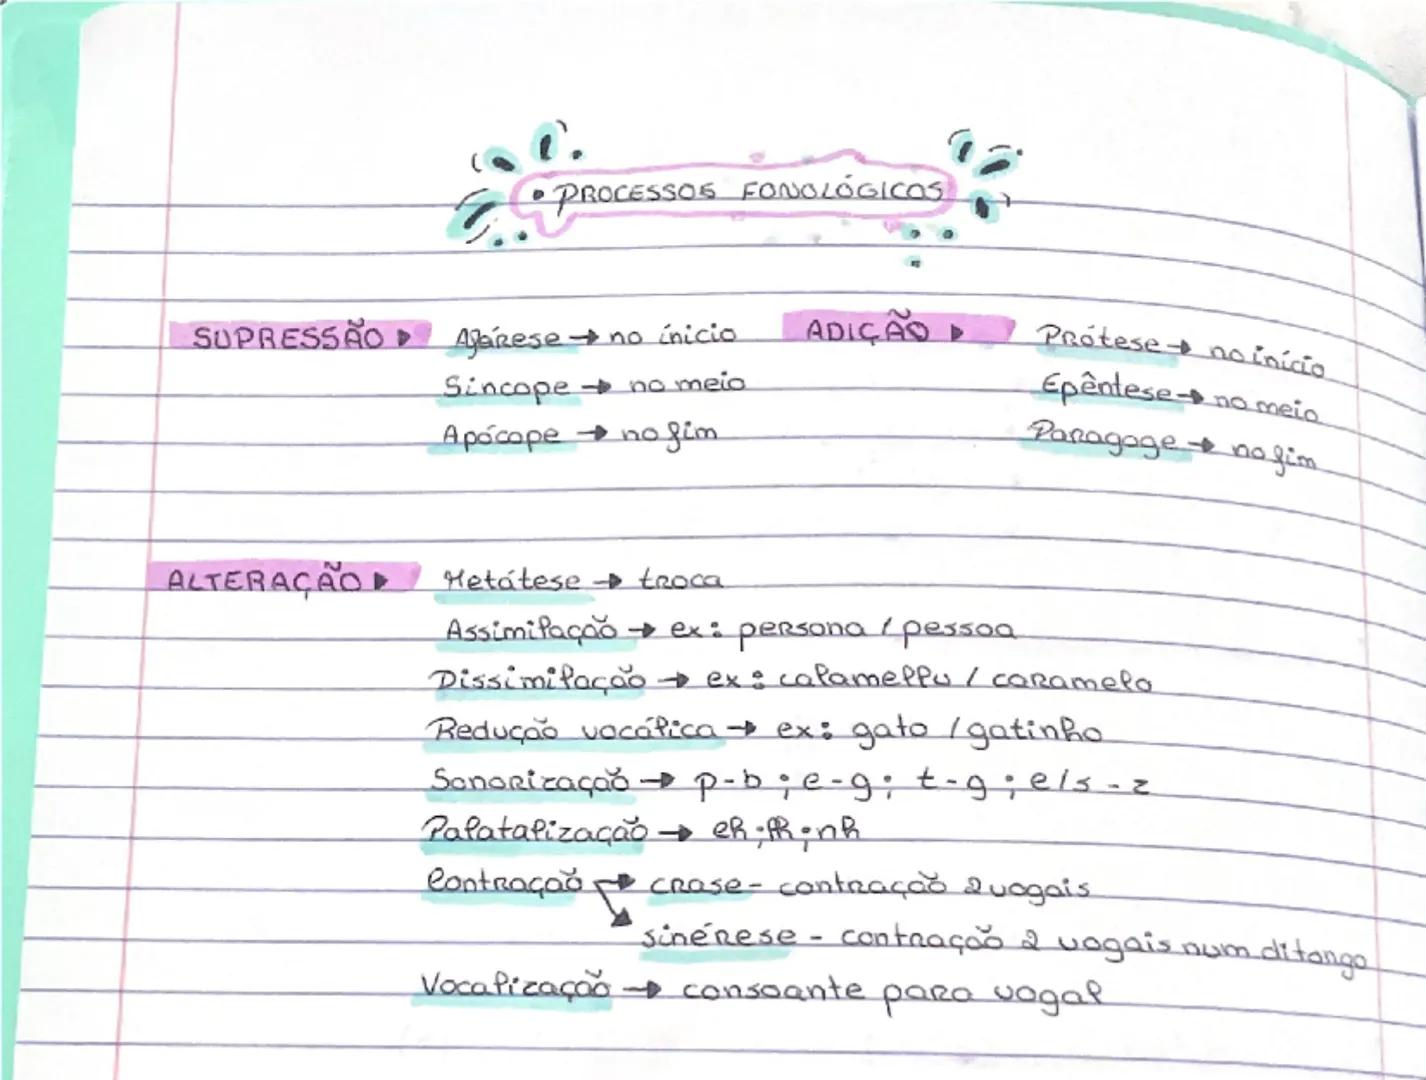 • PROCESSOS FONOLÓGICOS
SUPRESSÃO ▶ Aférese → no ínicio
Síncope → no meio
Apócope → no fim
ADIÇÃO ▶ Prótese → no início
Epêntese → no meio
Paragoge → no fim
ALTERAÇÃO ▶ Metátese → troca
Assimilação → ex: persona / pessoa
Dissimilação → ex: calamellu / caramelo
Redução vocálica → ex: gato / gatinho
Sonorização → p-b ; c-g ; t-g ; c/s - z
Palatalização → ch ; lh ; nh
Contração → crase - contração 2 vogais
sinérese - contração 2 vogais num ditongo
Vocalização → consoante para vogal